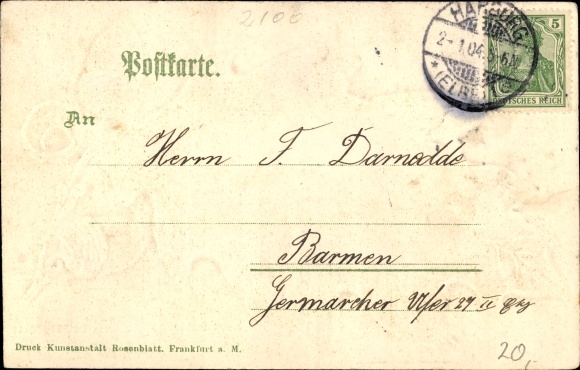 2100
HARBURG
2-1.04. 5-6N
* (ELBE) 
5
DEUTSCHES REICH
Postkarte.
An
Herrn F. Darnedde
Barmen
Germarcher Ufer 27 II
Druck Kunstanstalt Rosenblatt. Frankfurt a. M.
20,